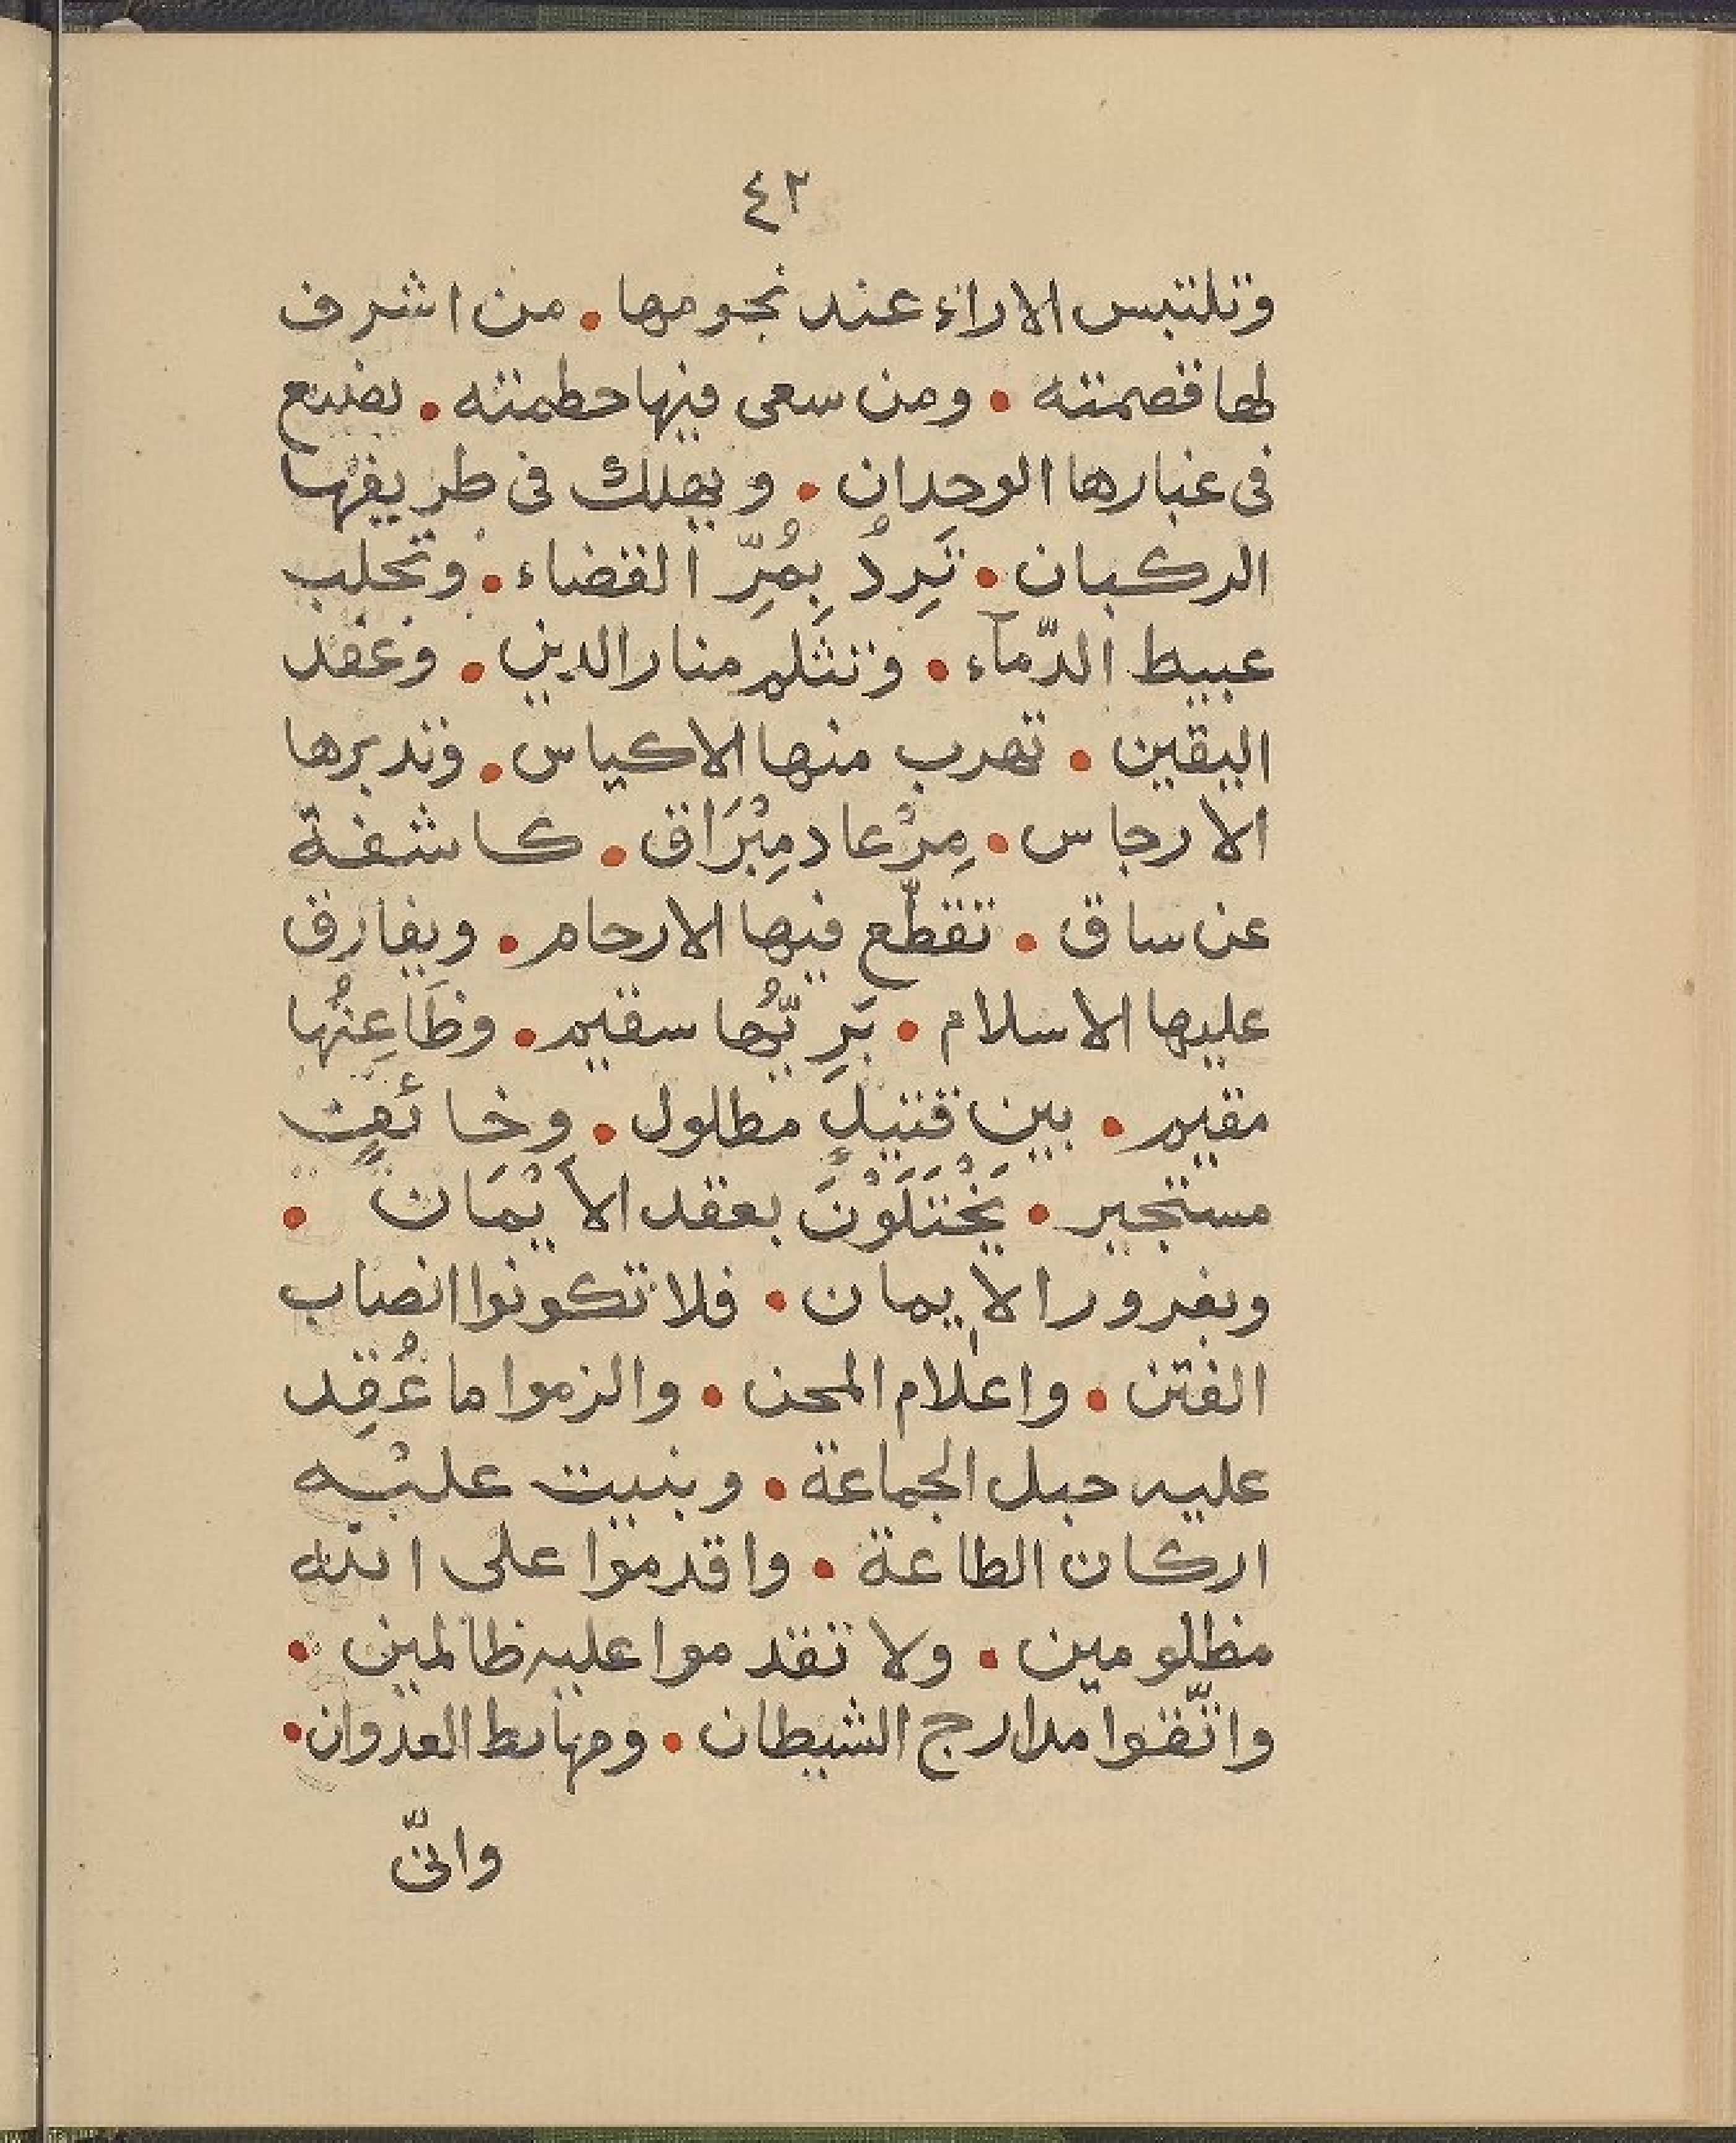 ٤٢
وتلتبس الاراء عند نجومها • من اشرف
لها قصمته • ومن سعى فيها حطمته • يضيع
فى غبارها الوحدان • ويهلك فى طريقها
الركبان • تَرِدُ بِمُرِّ القضاء • وتحلب
عبيط الدّمآء • وتثلم منار الدين • وعقد
اليقين • تهرب منها الاكياس • وتدبرها
الارجاس • مِرْعاد مِبْرَاق • كاشفة
عن ساق • تقطّع فيها الارحام • ويفارق
عليها الاسلام • بَرِيّهُا سقيم • وظَاعِنُها
مقيم • بين قتيلٍ مطلول • وخائفٍ
مستجير • يَخْتَلَوْنَ بعقد الاَيْمَان •
وبغرور الايمان • فلا تكونوا انصاب
الفتن • واعلام المحن • والزموا ما عُقِد
عليه حبل الجماعة • وبنيت عليْه
اركان الطاعة • واقدموا على الله
مظلومين • ولا تقدموا عليه ظالمين •
واتّقوا مدارج الشيطان • ومهابط العدوان •